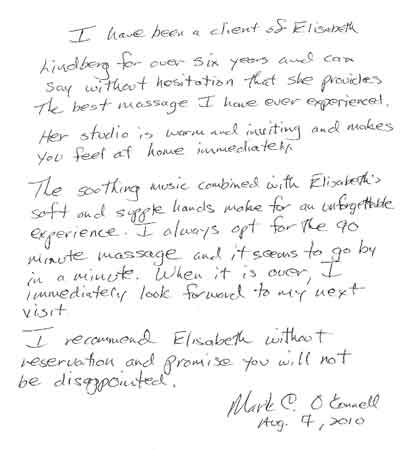 I have been a client of Elisabeth
Lindberg for over six years and can
say without hesitation that she provides
the best massage I have ever experienced.
Her studio is warm and inviting and makes
you feel at home immediately.
The soothing music combined with Elisabeth's
soft and supple hands make for an unforgettable
experience. I always opt for the 90
minute massage and it seems to go by
in a minute. When it is over, I
immediately look forward to my next
visit
I recommend Elisabeth without
reservation and promise you will not
be disappointed.
Mark C. O'Connell
Aug. 7, 2010